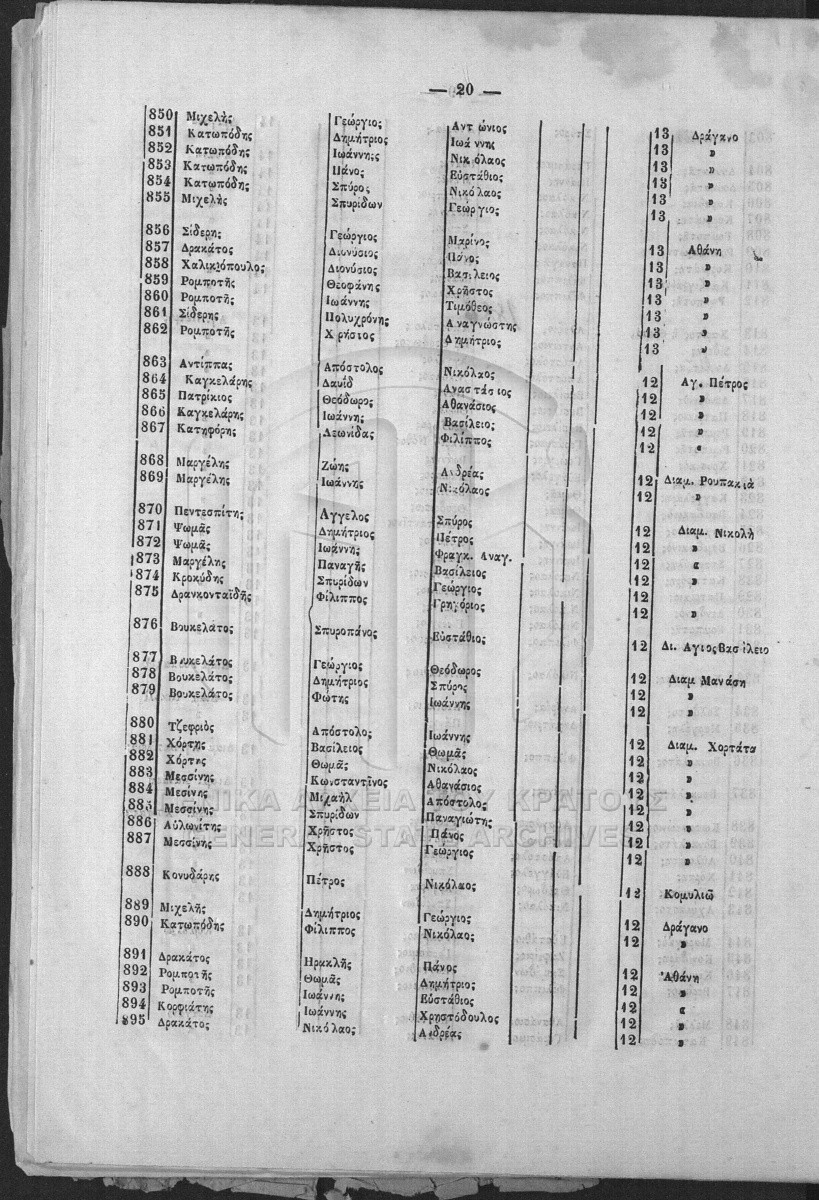 — 20 —
850 Μιχελῆς Γεώργιος Αντώνιος 13 Δράγανο
851 Κατωπόδης Δημήτριος Ἰωάννης 13 »
852 Κατωπόδης Ἰωάννης Νικόλαος 13 »
853 Κατωπόδης Πάνος Εὐστάθιος 13 »
854 Κατωπόδης Σπύρος Νικόλαος 13 »
855 Μιχελῆς Σπυρίδων Γεώργιος 13 »
856 Σίδερης Γεώργιος Μαρίνος 13 Ἀθάνη
857 Δρακάτος Διονύσιος Πάνος 13 »
858 Χαλικιόπουλος Διονύσιος Βασίλειος 13 »
859 Ρομποτῆς Θεοφάνης Χρῆστος 13 »
860 Ρομποτῆς Ἰωάννης Τιμόθεος 13 »
861 Σίδερης Πολυχρόνης Ἀναγνώστης 13 »
862 Ρομποτῆς Χρήσιος Δημήτριος 13 »
863 Αντίππας Ἀπόστολος Νικόλαος 12 Αγ. Πέτρος
864 Καγκελάρης Δαυίδ Ἀναστάσιος 12 »
865 Πατρίκιος Θεόδωρος Ἀθανάσιος 12 »
866 Καγκελάρης Ἰωάννης Βασίλειος 12 »
867 Κατηφόρης Λεωνίδας Φίλιππος 12 «
868 Μαργέλης Ζώης Ἀνδρέας 12 Διαμ. Ρουπακιὰ
869 Μαργέλης Ἰωάννης Νικόλαος 12 »
870 Πεντεσπίτης Ἄγγελος Σπύρος 12 Διαμ. Νικολῆ
871 Ψωμᾶς Δημήτριος Πέτρος 12 »
872 Ψωμᾶς Ἰωάννης Φραγκ. Αναγ. 12 «
873 Μαργέλης Παναγῆς Βασίλειος 12 »
874 Κροκύδης Σπυρίδων Γεώργιος 12 »
875 Δρανκονταϊδῆς Φίλιππος Γρηγόριος 12 »
876 Βουκελάτος Σπυροπάνος Εὐστάθιος 12 Δι. ΑγιοςΒασίλειο
877 Βουκελάτος Γεώργιος Θεόδωρος 12 Διαμ Μανάση
878 Βουκελάτος Δημήτριος Σπύρος 12 »
879 Βουκελάτος Φώτης Ἰωάννης 12 »
880 Τζεφριὸς Ἀπόστολος Ἰωάννης 12 Διαμ. Χορτάτα
881 Χόρτης Βασίλειος Θωμᾶς 12 »
882 Χόρτης Θωμᾶς Νικόλαος 12 »
883 Μεσσίνης Κωνσταντῖνος Αθανάσιος 12 »
884 Μεσίνης Μιχαὴλ Ἀπόστολος 12 »
885 Μεσσίνης Σπυρίδων Παναγιώτης 12 »
886 Αὐλωνίτης Χρῆστος Πάνος 12 »
887 Μεσσίνης Χρῆστος Γεώργιος 12 »
888 Κονυδάρης Πέτρος Νικόλαος 12 Κομυλιῶ
889 Μιχελῆς Δημήτριος Γεώργιος 12 Δράγανο
890 Κατωπόδης Φίλιππος Νικόλαος 12 »
891 Δρακάτος Ηρακλῆς Πάνος 12 Ἀθάνη
892 Ρομποτῆς Θωμᾶς Δημήτριος 12 »
893 Ρομποτῆς Ἰωάννης Εὐστάθιος 12 «
894 Κορφιάτης Ἰωάννης Χρηστόδουλος 12 »
895 Δρακάτος Νικόλαος Ἀνδρέας 12 »
ΓΕΝΙΚΑ ΑΡΧΕΙΑ ΤΟΥ ΚΡΑΤΟΥΣ
GENERAL STATE ARCHIVES